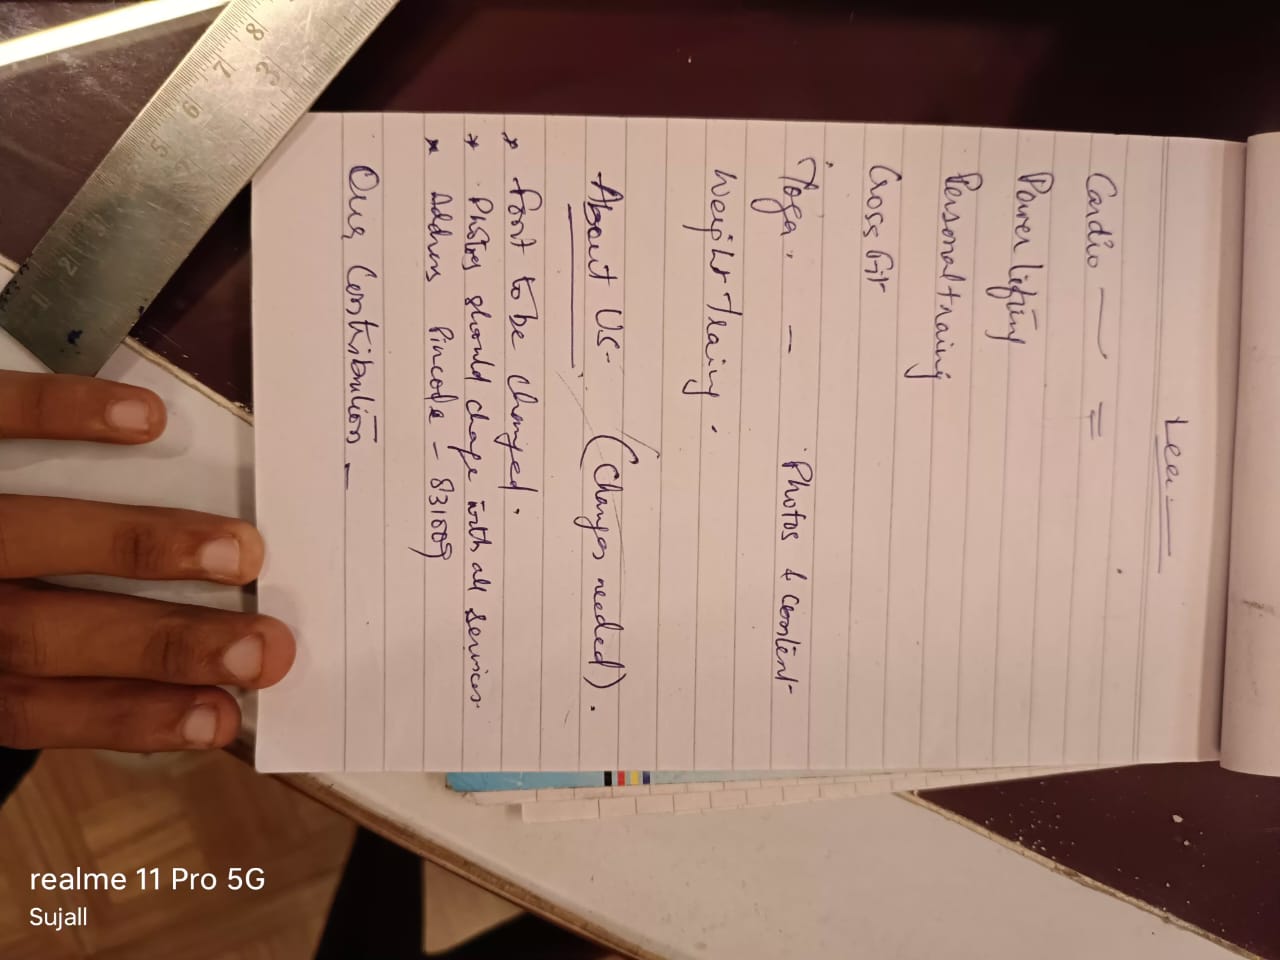 Cardio — =
Power lifting
Personal traing
Cross Fit
Yoga. — Photos & content
Weight Traing.
About Us- (Changes needed).
* font to be changed.
* Photos should change with all services.
* Address Pincode - 831009
Our Contribution -
8 7 6 5 3 2 1
realme 11 Pro 5G
Sujall